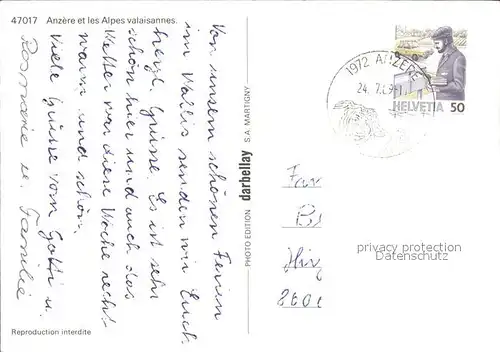 47017 Anzère et les Alpes valaisannes.
Von unserm schönen Ferien
im Wallis senden wir Euch
herzl. Grüsse. Es ist sehr
schön hier und auch das
Wetter war diese Woche recht
warm und schön.
Viele Grüsse vom Gotti u.
Rosmarie u. Familie
Reproduction interdite
PHOTO EDITION darbellay S.A. MARTIGNY
1972 ANZÈRE
24.7.89-11
HELVETIA 50
Fam
Hin
8600
privacy protection
Datenschutz